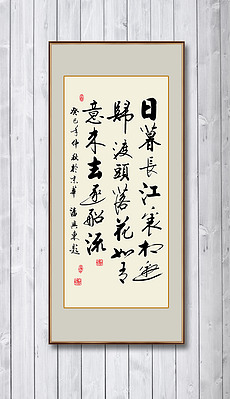 日暮長江裏相邀
歸渡頭落花如有
意來去逐船流
癸巳年仲秋於京華 潘 東題